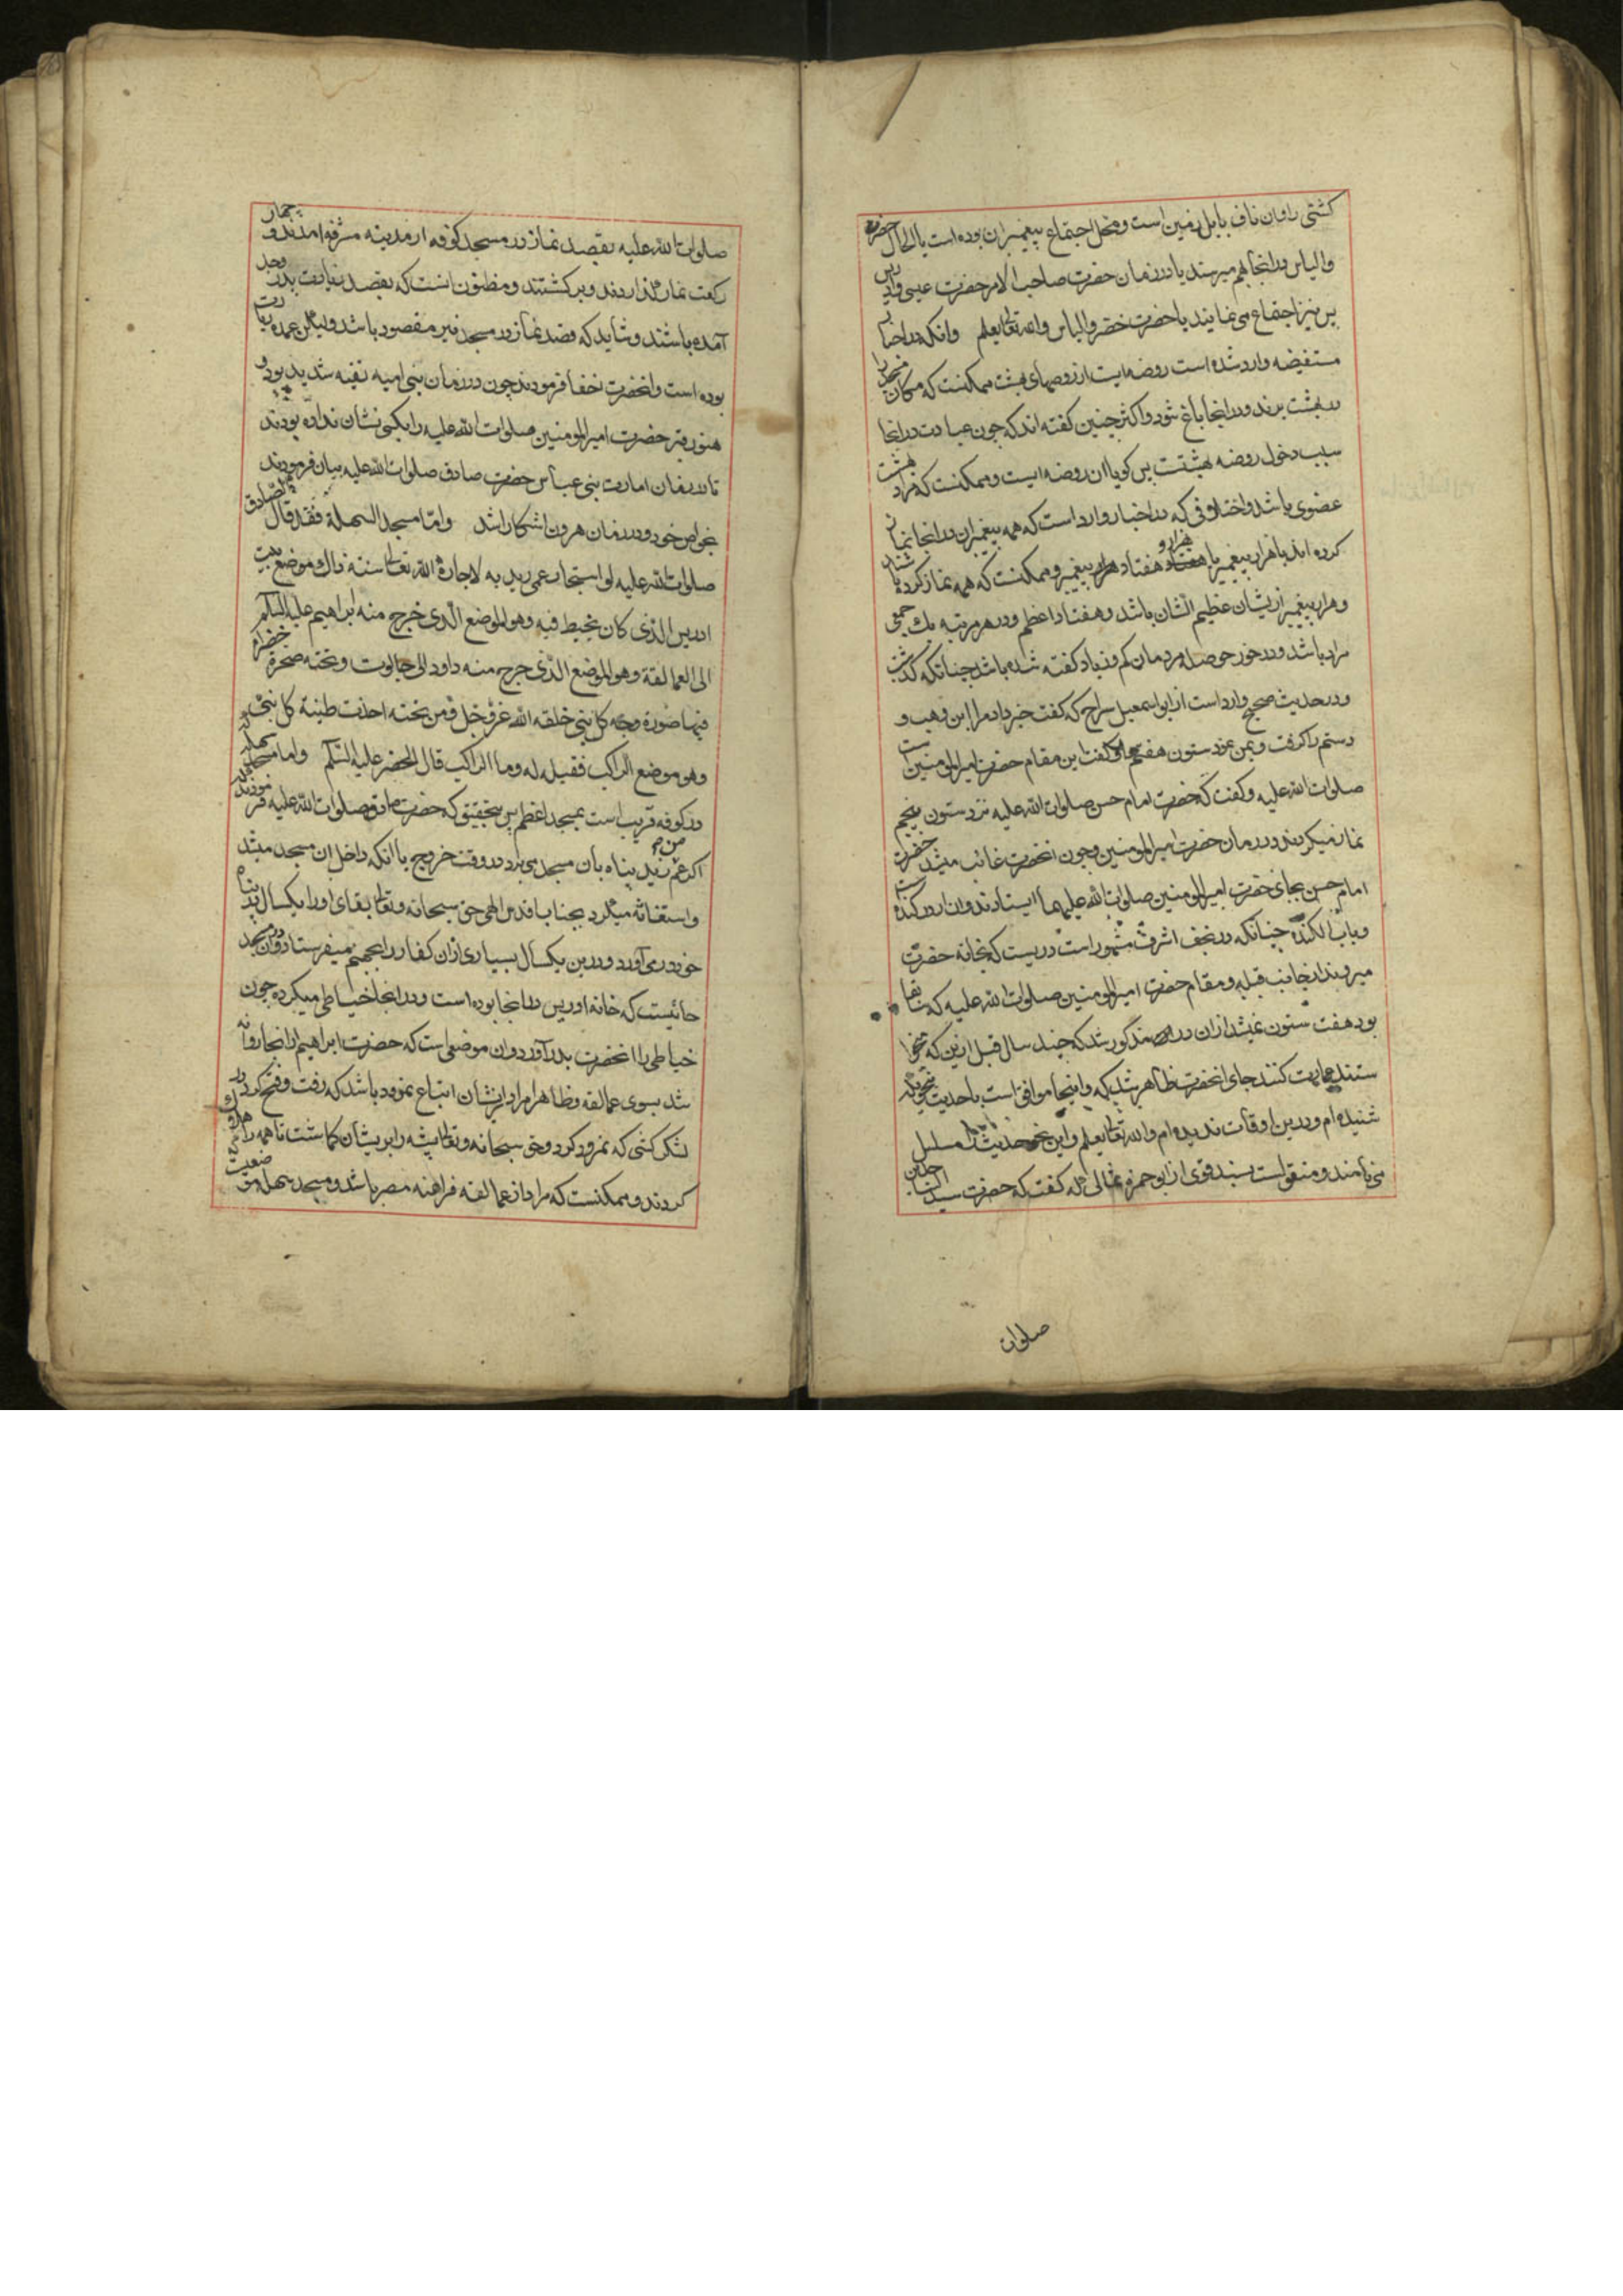 کشتی را وان ناف بابل زمین است و محل اجتماع پیغمبران بوده است یا الحال حضرت
والیاس در انجا بهم میرسند یا در زمان حضرت صاحب الامر حضرت عیسی وادریس
نیز اجتماع می نمایند یا حضرت خضر والیاس والله تعالی یعلم وانکه در اخبار
مستفیضه وارد شده است روضه ایست از روضهای بهشت ممکنست که مکان مسجد را
در بهشت برند و در انجا باغ شود و اکثر چنین گفته اند که چون عبادت در انجا
سبب دخول روضه بهشتست پس کویا ان روضه ایست و ممکنست که مراد بهشت
عضوی باشد و اختلافی که در اخبار وارد است که همه پیغمبران در انجا نماز
کرده اند یا هزار پیغمبر یا هزار و هفتاد پیغمبر و ممکنست که همه نماز کرده باشند
و هزار پیغمبر از یشان عظیم الشان باشد و هفتاد اعظم و در هر مرتبه یک جمعی
مراد باشد و در خور حوصله مردمان کم و زیاد کفته شده باشد چنانکه کذشت
و در حدیث صحیح وارد است از ابو اسمعیل سراج که کفت خبر داد مرا ابن وهب و
دستم را کرفت و بمن نمود ستون هفتم را و کفت این مقام حضرت امیرالمومنین است
صلوات الله علیه و کفت که حضرت امام حسن صلوات الله علیه نزد ستون پنجم
نماز میکردند و در زمان حضرت امیرالمومنین و چون انحضرت غائب میشد حضرت
امام حسن بجای حضرت امیرالمومنین صلوات الله علیهما ایستادند و ان از در کنده است
و باب الکنده چنانکه در نجف اشرف مشهور است دریست که بخانه حضرت
میروند از جانب قبله و مقام حضرت امیرالمومنین صلوات الله علیه که بنا
بود هفت ستون مذکور شد که چند سال قبل ازین که میخوا
ستند عمارت کنند جای انحضرت ظاهر شد و اینجا موافق است با حدیث
شنیده ام و درین اوقات ندیده ام والله تعالی یعلم و این نحو حدیث را مسلسل
می نامند و منقولست بسند قوی از ابو حمزه ثمالی که کفت که حضرت سید الساجدین
صلوات
صلوات الله علیه بقصد نماز در مسجد کوفه از مدینه مشرفه امدند و چهار
رکعت نماز کذاردند و برکشتند و مظنون انست که بقصد زیارت پدر وجد
آمده باشند و شاید که قصد نماز در مسجد نیز مقصود باشد ولیکن عمده زیارت
بوده است وانحضرت نخفا فرمودند چون در زمان بنی امیه تقیه شدید بود و
هنوز قبر حضرت امیرالمومنین صلوات الله علیه را بکسی نشان نداده بودند
تا در زمان امارت بنی عباس حضرت صادق صلوات الله علیه بیان فرمودند
بخواص خود و در زمان هرون اشکارا شد واما مسجد السهلة فقد قال الصادق
صلوات الله علیه لو استجار عمی زید به لاجاره الله تعالی سنة ذاک موضع بیت
ادریس الذی کان یخیط فیه وهو الموضع الذی خرج منه ابراهیم علیه السلام
الی العمالقة وهو الموضع الذی خرج منه داود الی جالوت و تحته صخرة خضراء
فیها صورة وجه کل نبی خلقه الله عز و جل ومن تحته اخذت طینة کل نبی
وهو موضع الراکب فقیل له وما الراکب قال الخضر علیه السلام واما مسجد سهله
در کوفه قریب است بمسجد اعظم پس بتحقیق که حضرت صادق صلوات الله علیه فرمودند
اکر عم من زید پناه بان مسجد می برد در وقت خروج یا انکه داخل ان مسجد میشد
واستغاثه میکرد بجناب اقدس الهی حق سبحانه وتعالی بقای او را یکسال در پناه
خود در می آورد و درین یکسال بسیاری از ان کفار را بجهنم میفرستاد و ان مسجد
جائیست که خانه ادریس در انجا بوده است و در انجا خیاطی میکرده چون
خیاطی را انحضرت بدر آورد و ان موضعی است که حضرت ابراهیم از انجا روانه
شد بسوی عمالقه و ظاهرا مراد ازیشان اتباع نمرود باشد که رفت و فتح کرد در
لشکر کشی که نمرود کرد وحق سبحانه وتعالی پشه را بر یشان کماشت تا همه را هلاک
کردند و ممکنست که مراد از عمالقه فراعنه مصر باشد و مسجد سهله